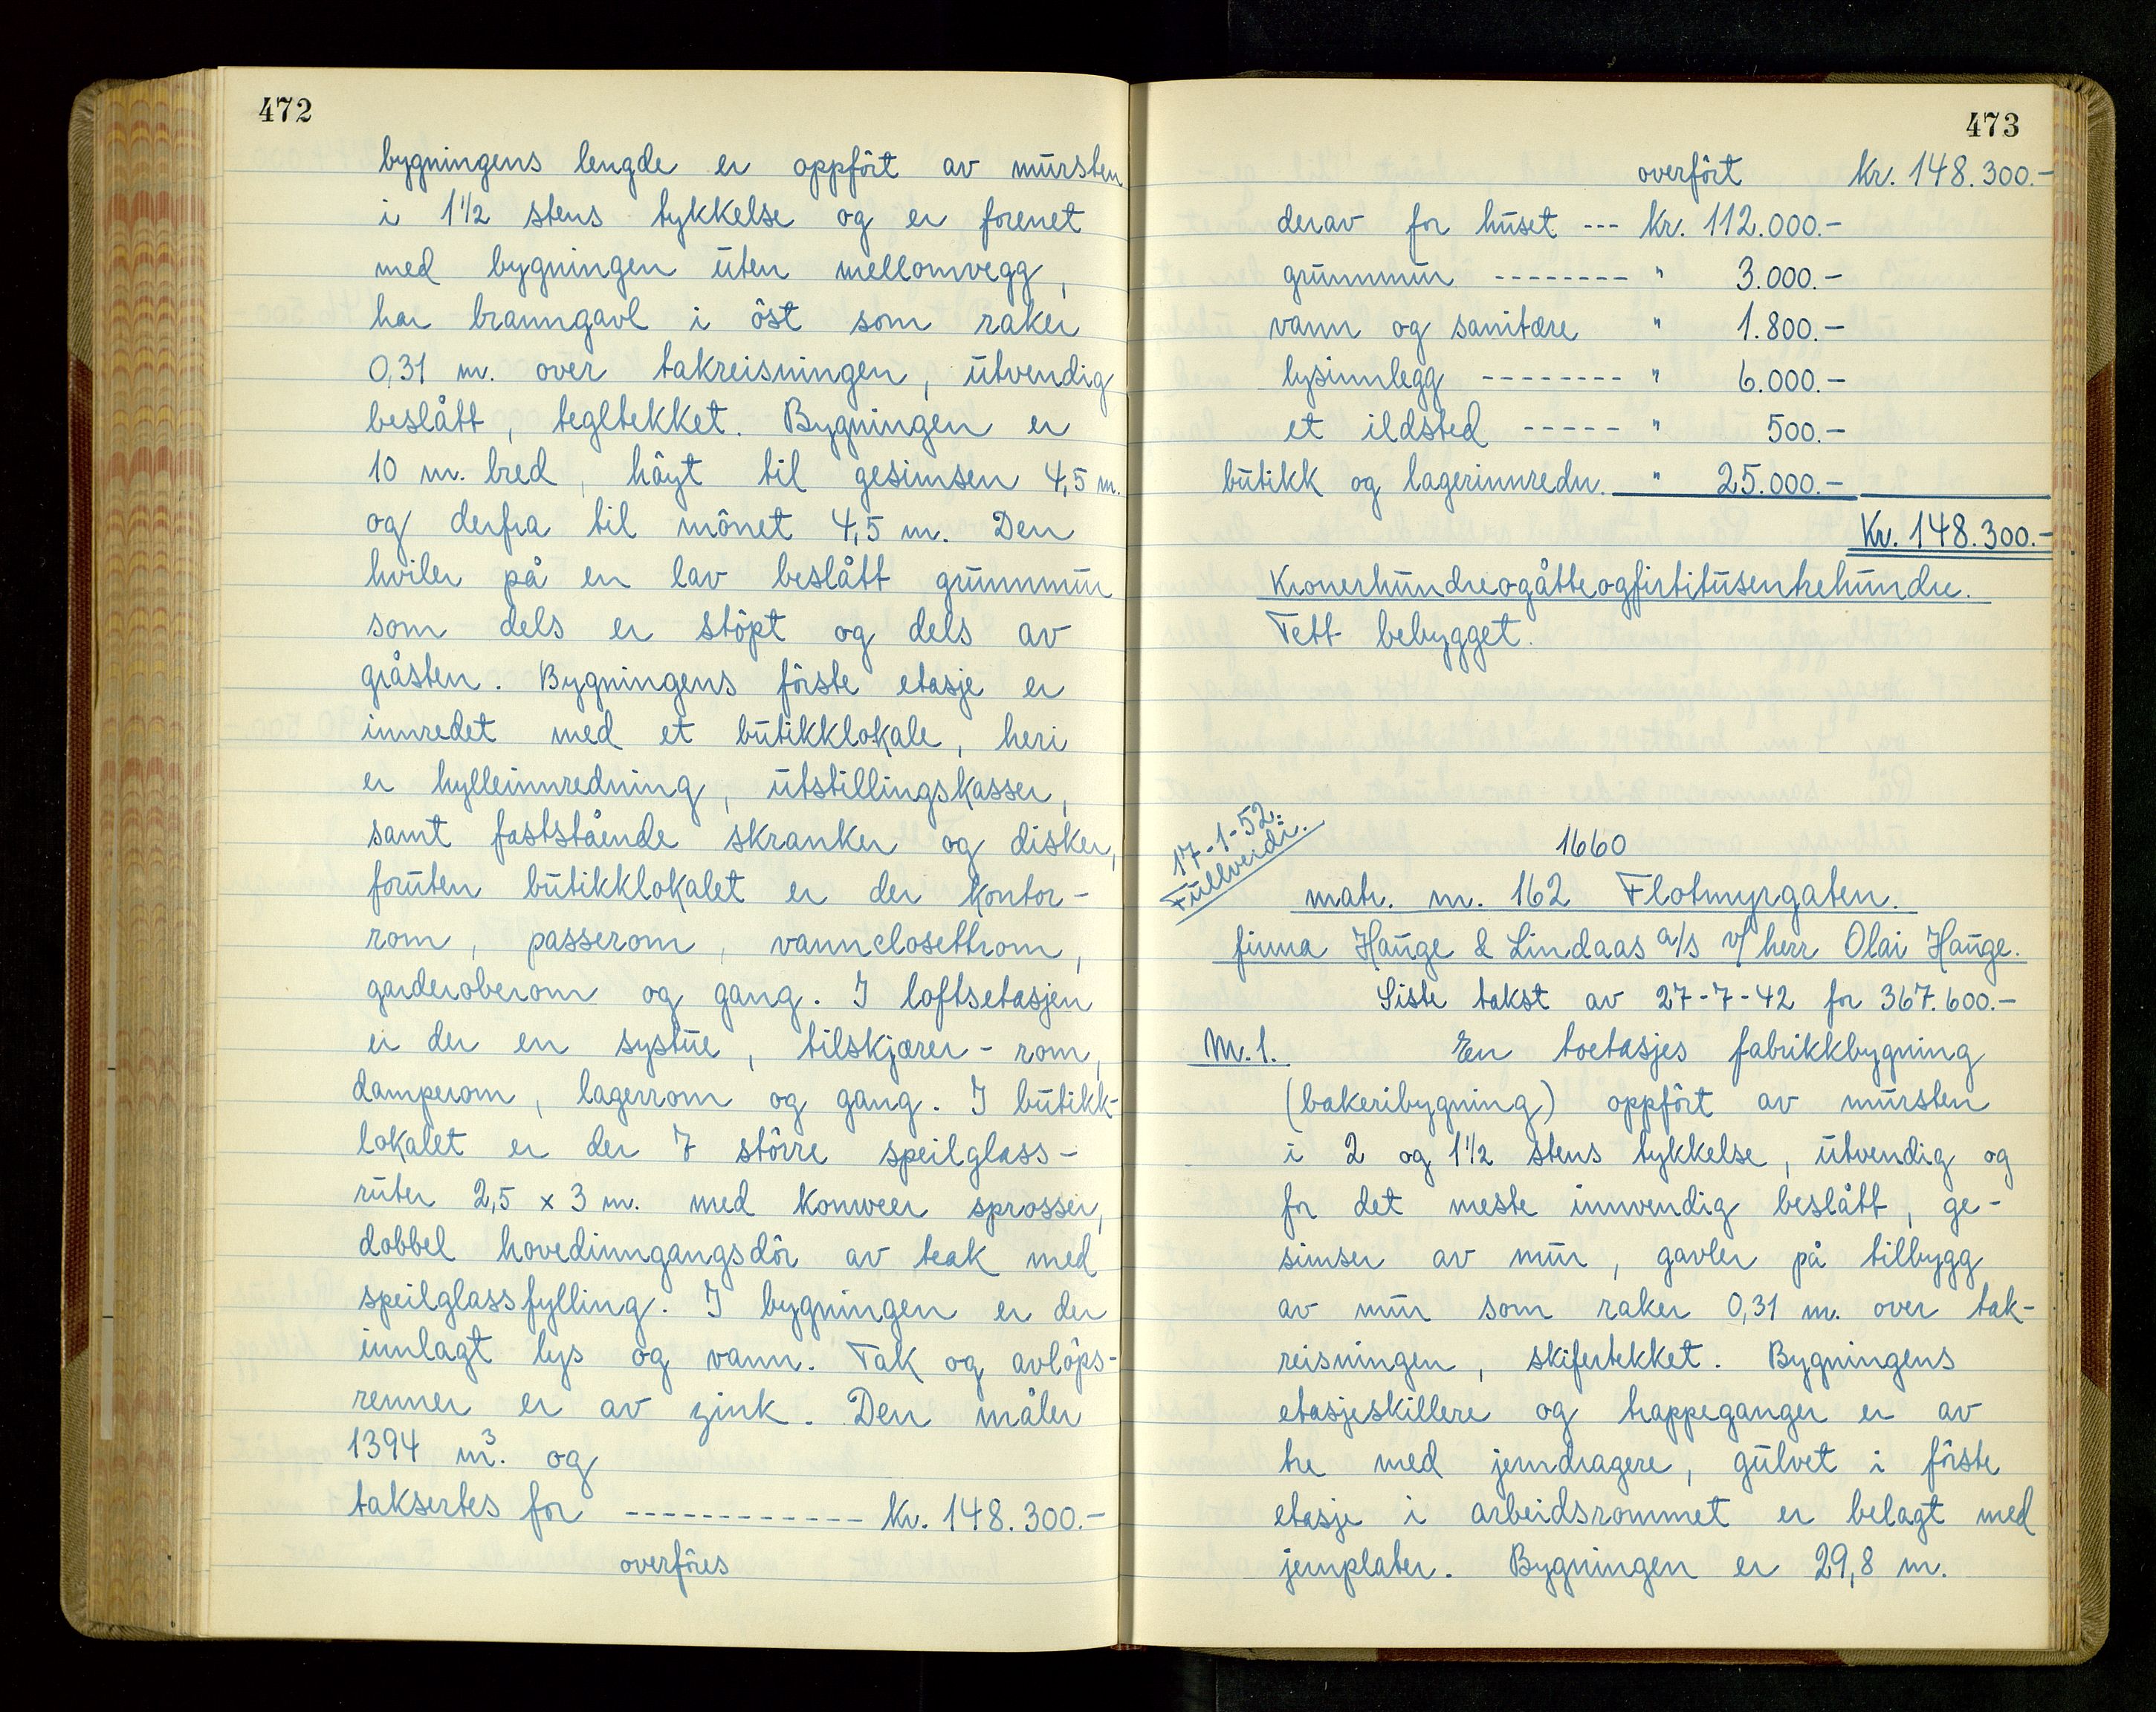 472
bygningens lengde er oppført av mursten
i 1½ stens tykkelse og er forenet
med bygningen uten mellomvegg,
har branngavl i øst som raker
0,31 m. over takreisningen, utvendig
beslått, tegltekket. Bygningen er
10 m. bred, høyt til gesimsen 4,5 m.
og derfra til mønet 4,5 m. Den
hviler på en lav beslått grunnmur
som dels er støpt og dels av
gråsten. Bygningens første etasje er
innredet med et butikklokale, heri
er hylleinnredning, utstillingskasser,
samt faststående skranker og disker,
foruten butikklokalet er der kontor-
rom, passerom, vannclosettrom,
garderoberom og gang. I loftsetasjen
er der en systue, tilskjærer-rom,
damperom, lagerrom og gang. I butikk-
lokalet er der 7 større speilglass-
ruter 2,5 x 3 m. med konweer sprosser,
dobbel hovedinngangsdør av teak med
speilglassfylling. I bygningen er der
innlagt lys og vann. Tak og avløps-
renner er av zink. Den måler
1394 m³. og
taksertes for ------------ Kr. 148.300.-
overføres
473
overført Kr. 148.300.-
derav for huset --- Kr. 112.000.-
grunnmur -------- " 3.000.-
vann og sanitære " 1.800.-
lysinnlegg -------- " 6.000.-
et ildsted ----- " 500.-
butikk og lagerinnredn. " 25.000.-
Kr. 148.300.-
Kronerhundreogåtteogfirtitusentrehundre.
Tett bebygget.
17-1-52.
Fullverdi.
1660
matr. nr. 162 Flotmyrgaten.
firma Hauge & Lindaas a/s v/ herr Olai Hauge.
Siste takst av 27-7-42 for 367.600.-
M. 1. En toetasjes fabrikkbygning
(bakeribygning) oppført av mursten
i 2 og 1½ stens tykkelse, utvendig og
for det meste innvendig beslått, ge-
simser av mur, gavler på tilbygg
av mur som raker 0,31 m. over tak-
reisningen, skifertekket. Bygningens
etasjeskillere og trappeganger er av
tre med jerndragere, gulvet i første
etasje i arbeidsrommet er belagt med
jernplater. Bygningen er 29,8 m.